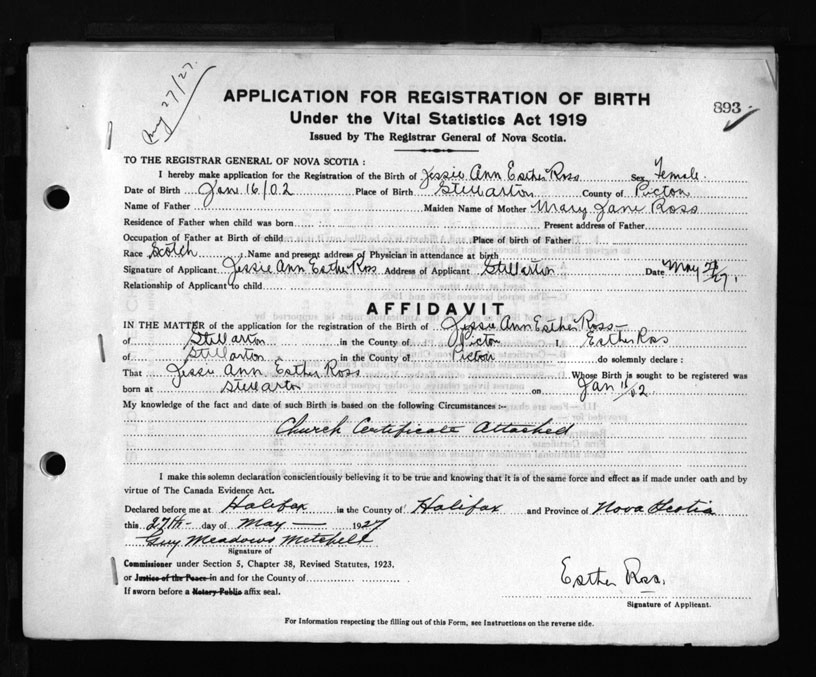 May 27/27.
APPLICATION FOR REGISTRATION OF BIRTH
893
Under the Vital Statistics Act 1919
Issued by The Registrar General of Nova Scotia.
TO THE REGISTRAR GENERAL OF NOVA SCOTIA :
I hereby make application for the Registration of the Birth of Jessie Ann Esther Ross Sex Female.
Date of Birth Jan 16/02 Place of Birth Stellarton County of Pictou
Name of Father Maiden Name of Mother Mary Jane Ross
Residence of Father when child was born Present address of Father
Occupation of Father at Birth of child Place of birth of Father
Race Scotch Name and present address of Physician in attendance at birth
Signature of Applicant Jessie Ann Esther Ross Address of Applicant Stellarton Date May /27.
Relationship of Applicant to child
AFFIDAVIT
IN THE MATTER of the application for the registration of the Birth of Jessie Ann Esther Ross
of Stellarton in the County of Pictou I, Esther Ross
of Stellarton in the County of Pictou do solemnly declare :
That Jessie Ann Esther Ross Whose Birth is sought to be registered was
born at Stellarton on Jan 16/02
My knowledge of the fact and date of such Birth is based on the following Circumstances :-
Church Certificate Attached
I make this solemn declaration conscientiously believing it to be true and knowing that it is of the same force and effect as if made under oath and by
virtue of The Canada Evidence Act.
Declared before me at Halifax in the County of Halifax and Province of Nova Scotia
this 27th day of May 1927
Guy Meadows Mitchell
Signature of
Commissioner under Section 5, Chapter 38, Revised Statutes, 1923.
or Justice of the Peace in and for the County of
If sworn before a Notary Public affix seal.
Esther Ross.
Signature of Applicant.
For Information respecting the filling out of this Form, see Instructions on the reverse side.